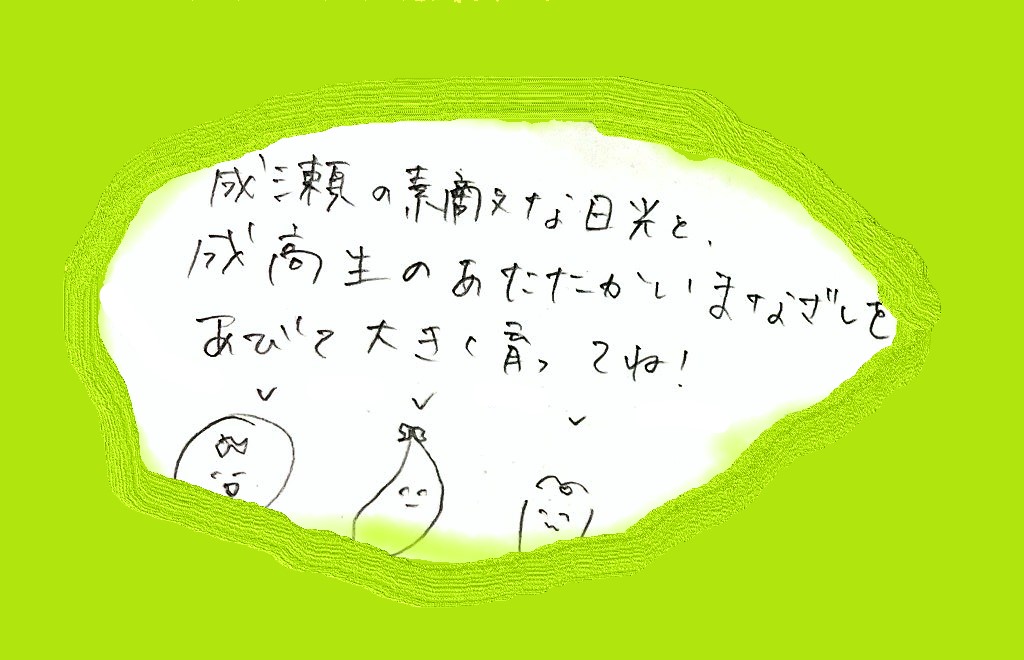 成瀬の素敵な日光と、
成高生のあたたかいまなざしを
あびて大きく育ってね!